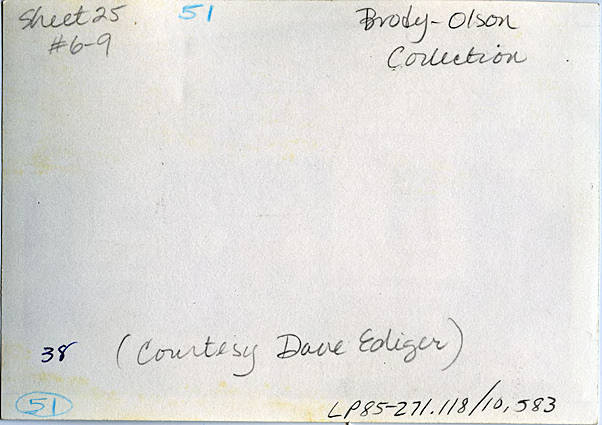 Sheet 25
#6-9
51
Brody-Olson
Collection
38
(Courtesy Dave Ediger)
51
LP85-271.118/10,583